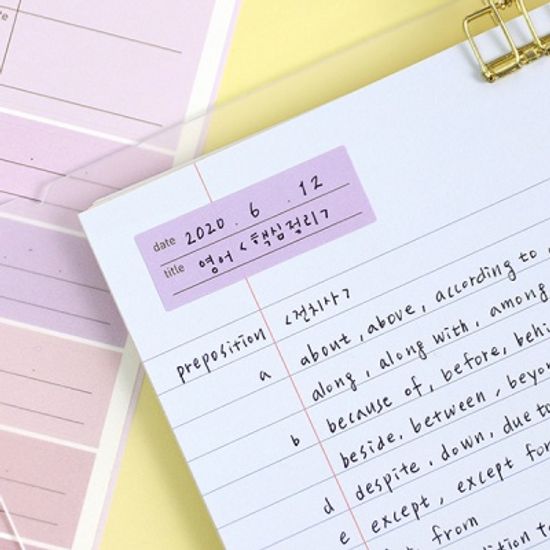 date 2020 . 6 . 12
title 영어 <핵심정리>
preposition <전치사>
a about, above, according to
along, along with, among
because of, before,
b beside, between, beyon
d despite, down, due to
e except, except for
from